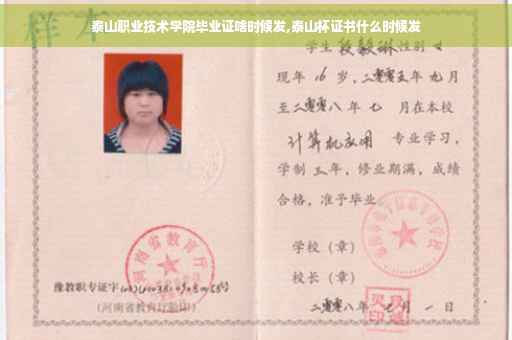 泰山职业技术学院毕业证啥时候发,泰山杯证书什么时候发
样本
学生段毅琳性别女
现年16岁,二零零五年九月
至二零零八年七 月在本校
计算机应用 专业学习,
学制三年,修业期满,成绩
合格,准予毕业
学校(章)
校长(章)
二零零八年七月一日
河南省教育厅
豫教职专证字
(河南省教育厅验印)